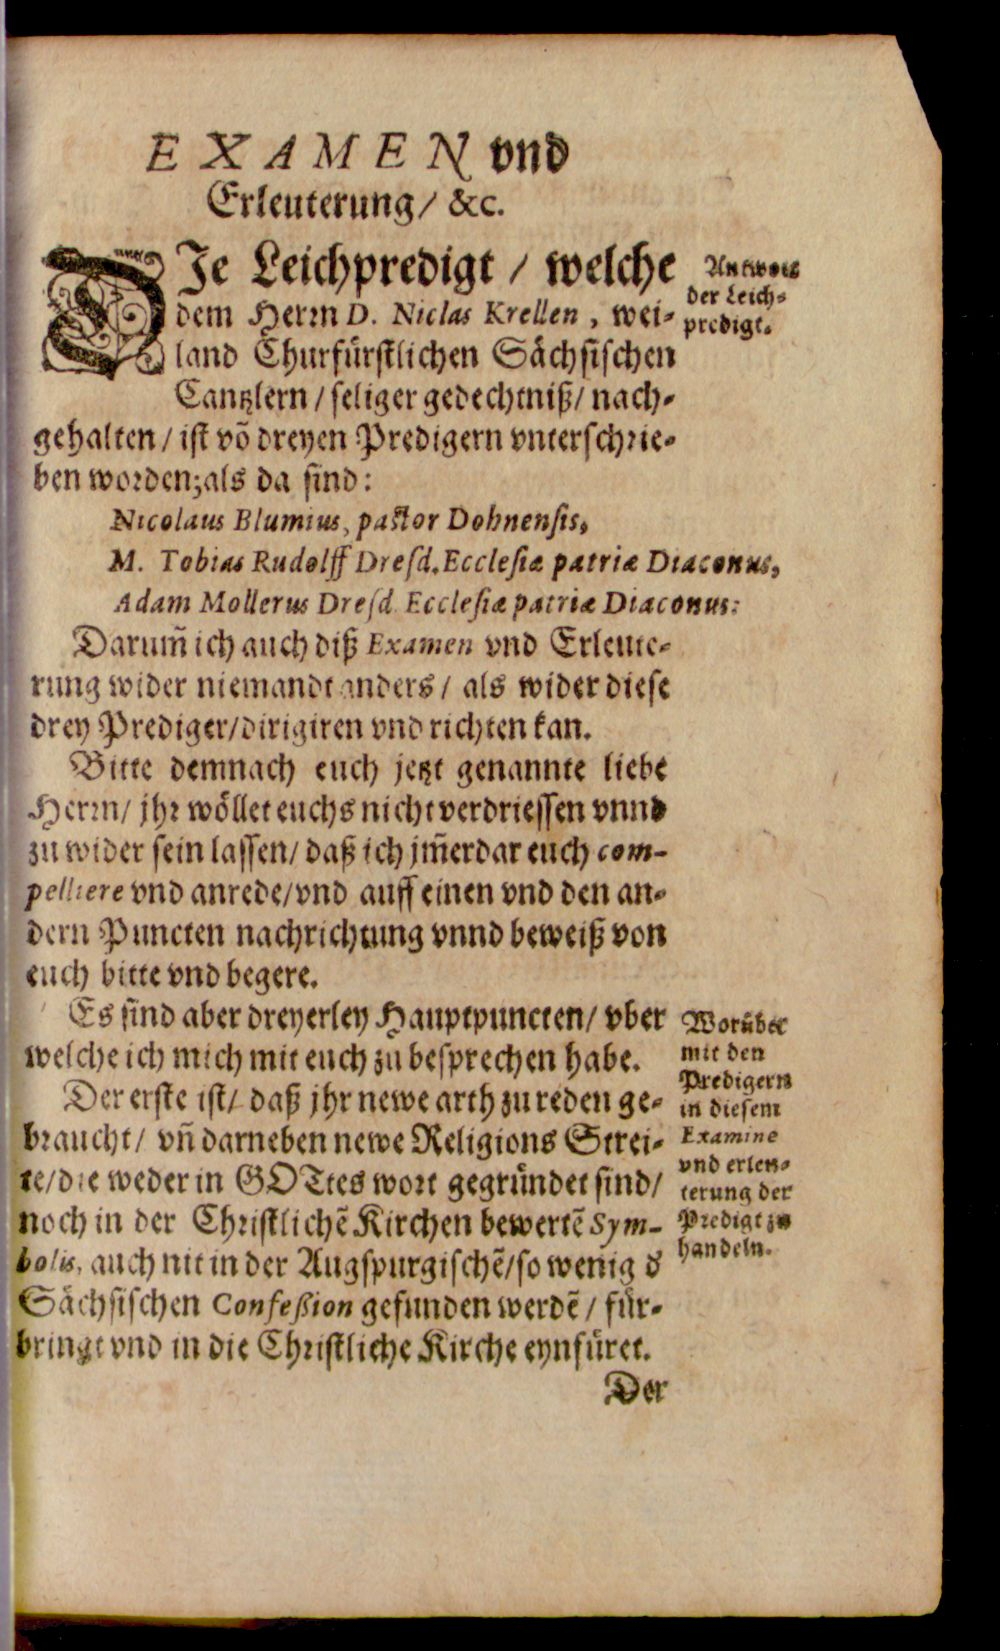 EXAMEN vnd
Erleuterung/ &c.
DIe Leichpredigt / welche
dem Herrn D. Niclas Krellen, wei-
land Churfürstlichen Sächsischen
Cantzlern / seliger gedechtniß/ nach-
gehalten / ist võ dreyen Predigern vnterschrie-
ben worden; als da sind:
Nicolaus Blumius, pastor Dohnensis,
M. Tobias Rudolff Dresd. Ecclesiæ patriæ Diaconus,
Adam Mollerus Dresd. Ecclesiæ patriæ Diaconus:
Darum̃ ich auch diß Examen vnd Erleute-
rung wider niemandt anders / als wider diese
drey Prediger/dirigiren vnd richten kan.
Bitte demnach euch jetzt genannte liebe
Herrn/ jhr wöllet euchs nicht verdriessen vnnd
zu wider sein lassen/ daß ich jm̃erdar euch com-
pelliere vnd anrede/vnd auff einen vnd den an-
dern Puncten nachrichtung vnnd beweiß von
euch bitte vnd begere.
Es sind aber dreyerley Hauptpuncten/ vber
welche ich mich mit euch zu besprechen habe.
Der erste ist/ daß jhr newe arth zu reden ge-
braucht/ vñ darneben newe Religions Strei-
te/die weder in GOTtes wort gegründet sind/
noch in der Christlichẽ Kirchen bewertẽ Sym-
bolis, auch nit in der Augspurgischẽ/so wenig d̕
Sächsischen Confeßion gefunden werdẽ / für-
bringt vnd in die Christliche Kirche eynfüret.
Der
Antwort
der Leich-
predigt.
Worüber
mit den
Predigern
in diesem
Examine
vnd erleu-
terung der
Predigt zu
handeln.